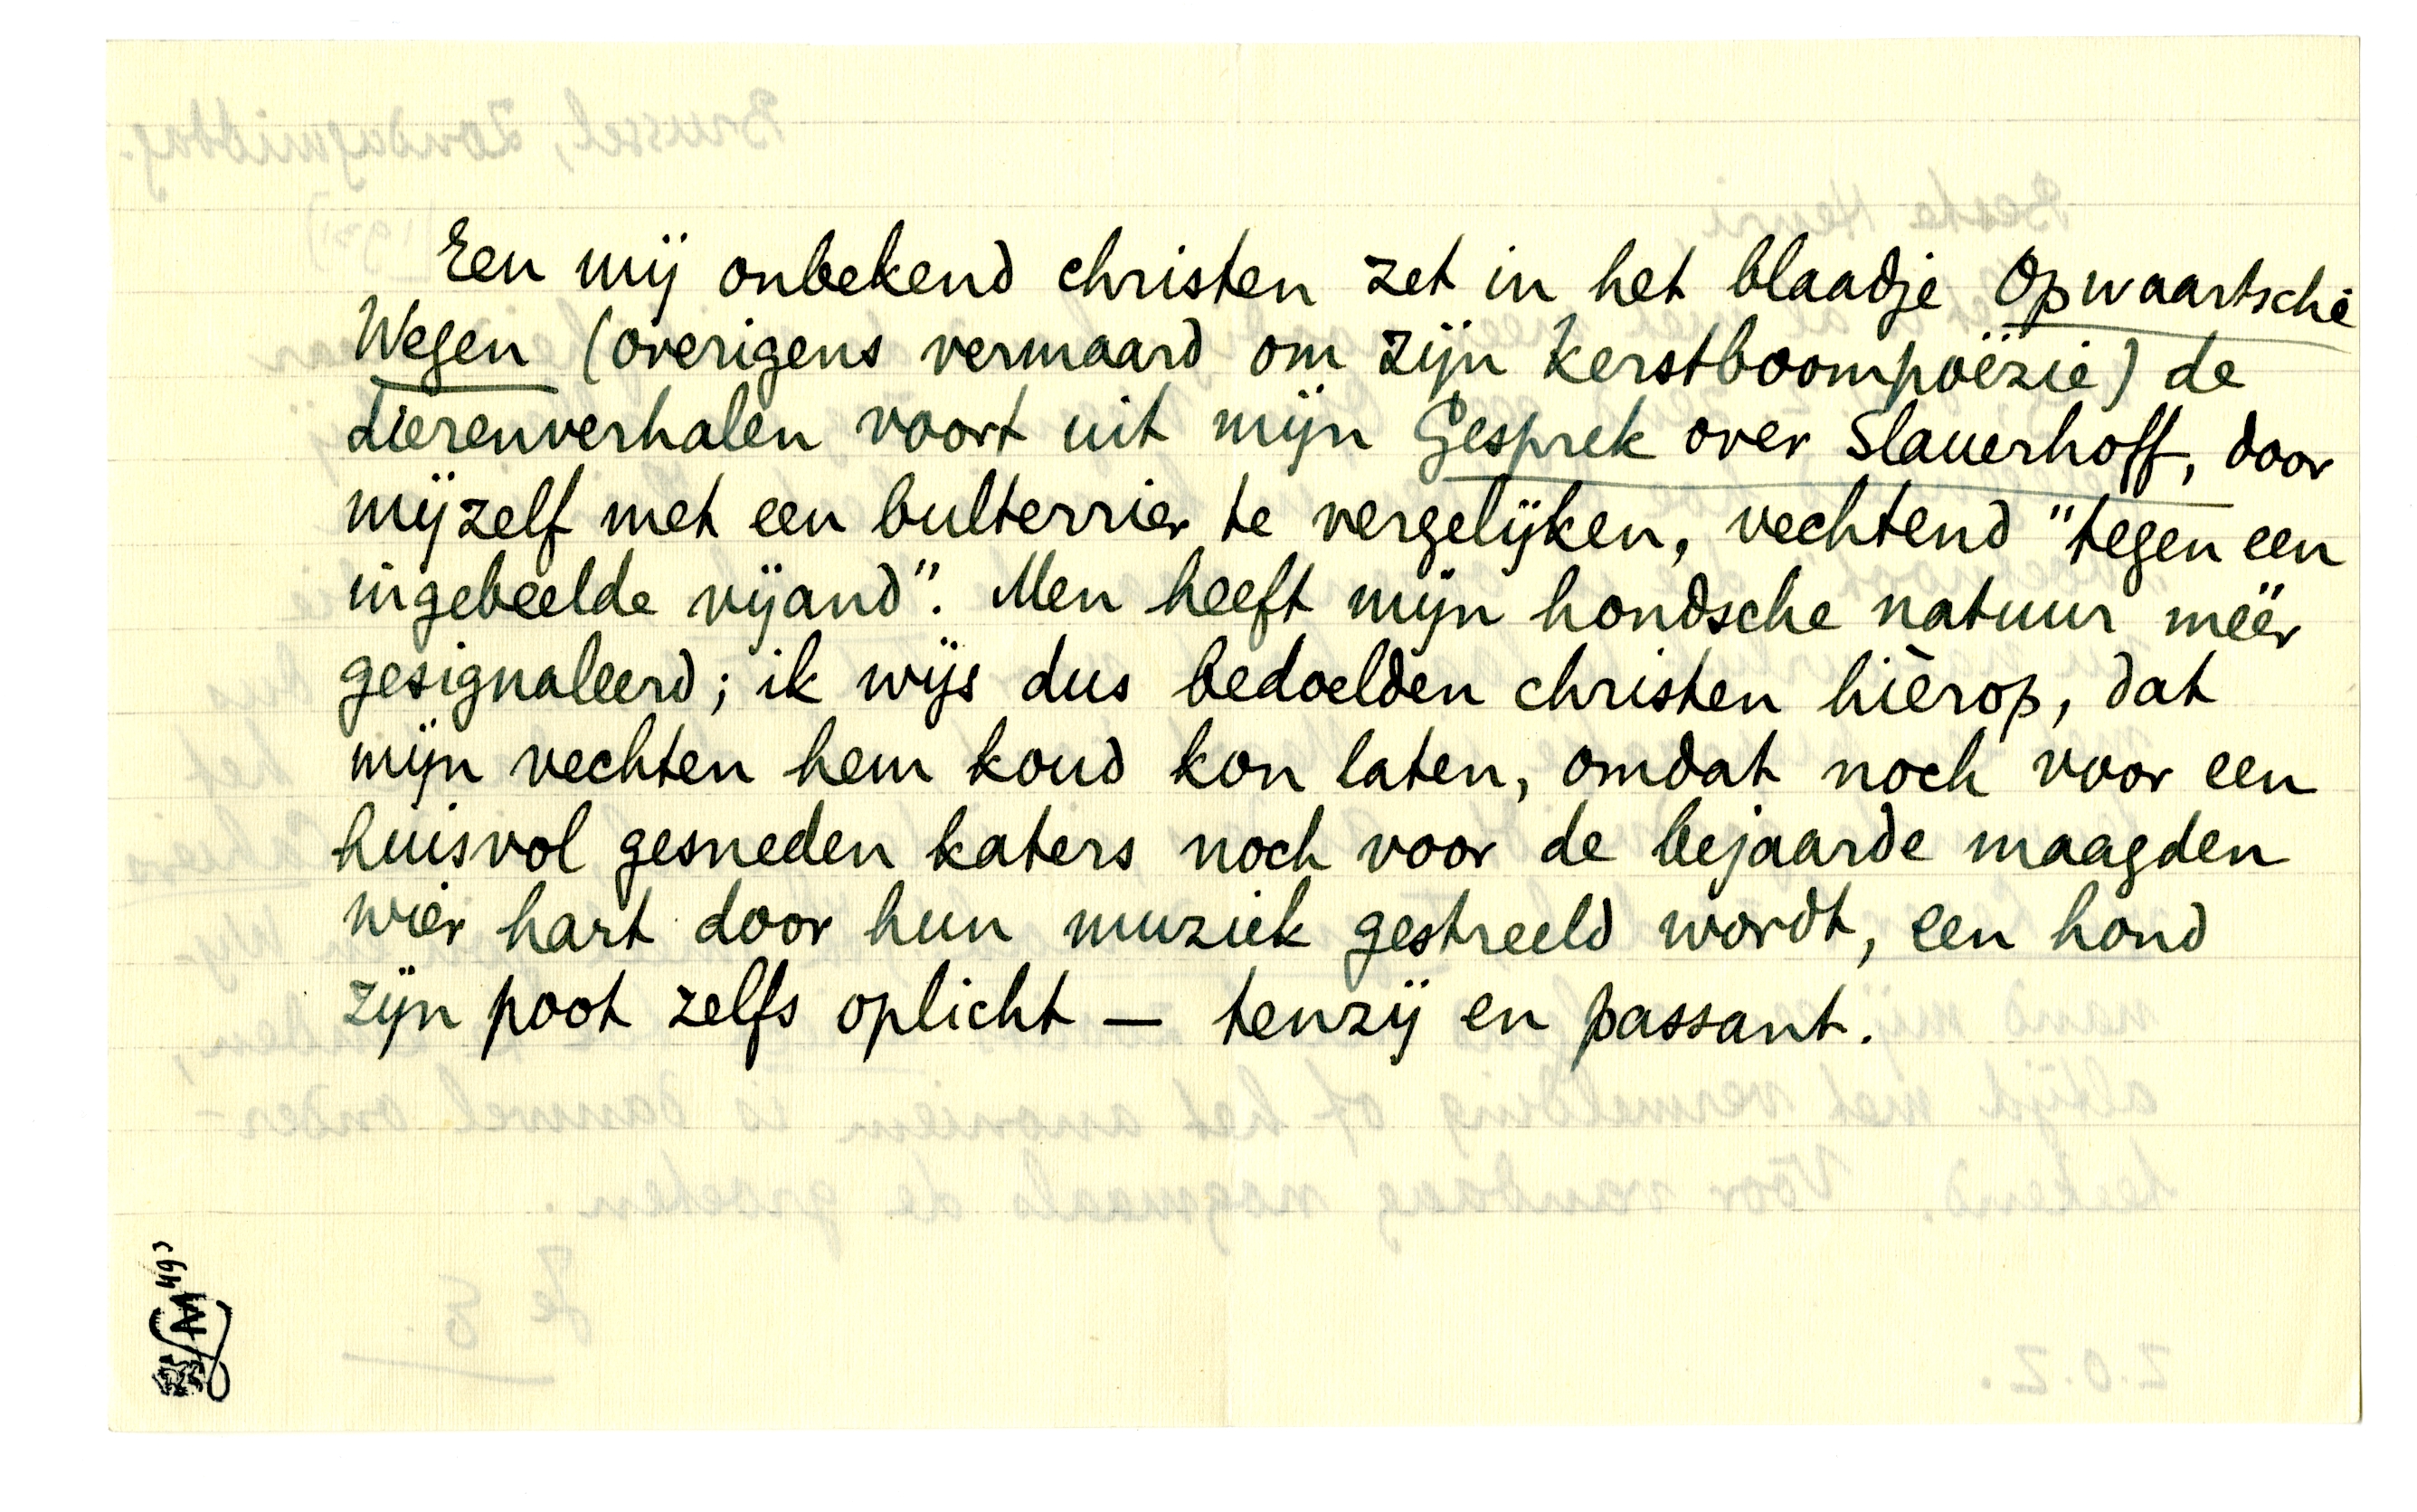 Een mij onbekend christen zet in het blaadje Opwaartsche
Wegen (overigens vermaard om zijn kerstboompoëzie) de
dierenverhalen voort uit mijn Gesprek over Slauerhoff, door
mijzelf met een bulterrier te vergelijken, vechtend "tegen een
ingebeelde vijand". Men heeft mijn hondsche natuur méér
gesignaleerd; ik wijs dus bedoelden christen hièrop, dat
mijn vechten hem koud kon laten, omdat noch voor een
huisvol gesneden katers noch voor de bejaarde maagden
wier hart door hun muziek gestreeld wordt, een hond
zijn poot zelfs oplicht — tenzij en passant.